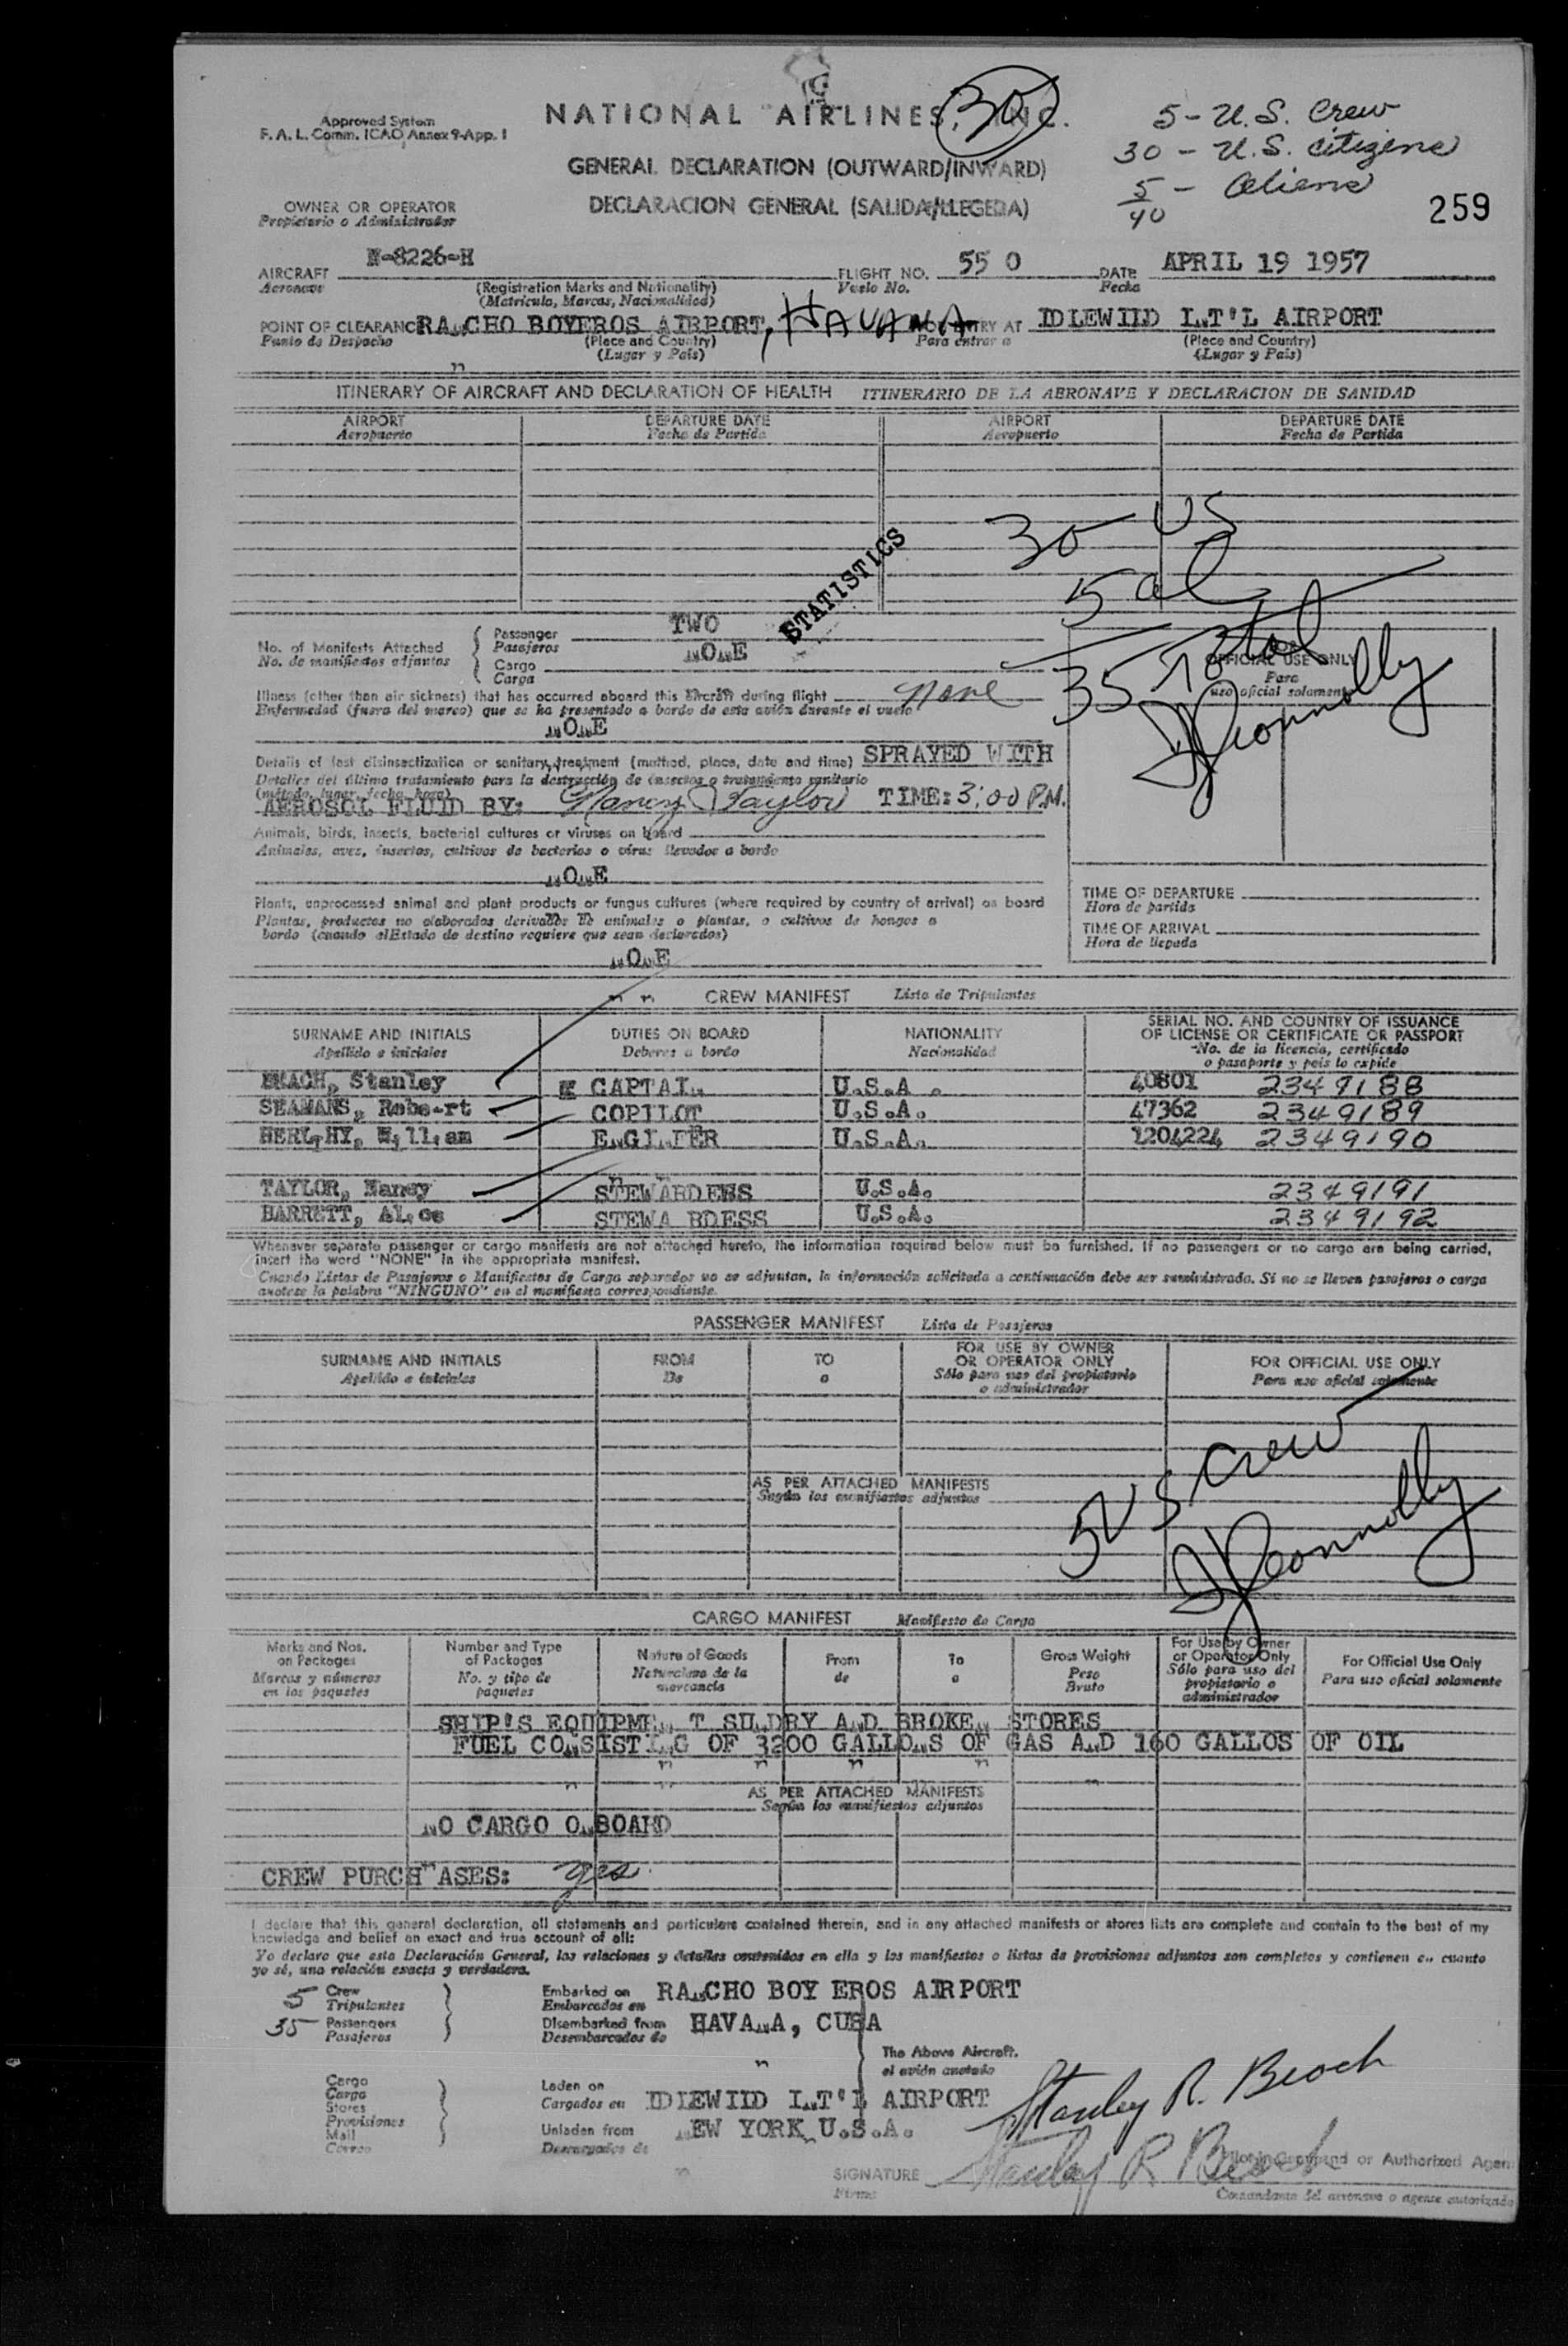 Approved System
F. A. L. Comm. ICAO, Annex 9-App. I
NATIONAL AIRLINES, INC.
30
5 - U.S. Crew
30 - U.S. citizens
5 - Aliens
40
GENERAL DECLARATION (OUTWARD/INWARD)
DECLARACION GENERAL (SALIDA/LLEGEDA)
259
OWNER OR OPERATOR
Propietario o Administrador
AIRCRAFT N-8226-H FLIGHT NO. 55 0 DATE APRIL 19 1957
Aeronave (Registration Marks and Nationality) Vuelo No. Fecha
(Matricula, Marcas, Nacionalidad)
POINT OF CLEARANCE RA CHO BOYEROS AIRPORT, HAVANA ENTRY AT IDLEWIID I T'L AIRPORT
Punto de Despacho (Place and Country) Para entrar a (Place and Country)
(Lugar y Pais) (Lugar y Pais)
ITINERARY OF AIRCRAFT AND DECLARATION OF HEALTH ITINERARIO DE LA AERONAVE Y DECLARACION DE SANIDAD
AIRPORT DEPARTURE DATE AIRPORT DEPARTURE DATE
Aeropuerto Fecha de Partida Aeropuerto Fecha de Partida
30 US
5 al
35 Total
STATISTICS
No. of Manifests Attached Passenger TWO
No. de manifiestos adjuntos Pasajeros
Cargo NONE
Carga
OFFICIAL USE ONLY
Para
uso oficial solamente
JConnolly
Illness (other than air sickness) that has occurred aboard this aircraft during flight none
Enfermedad (fuera del mareo) que se ha presentado a bordo de este avión durante el vuelo
NONE
Details of last disinsectization or sanitary treatment (method, place, date and time) SPRAYED WITH
Detalles del último tratamiento para la destrucción de insectos o tratamiento sanitario
(método, lugar, fecha, hora)
AEROSOL FLUID BY: Nancy Taylor TIME: 3:00 P.M.
Animals, birds, insects, bacterial cultures or viruses on board
Animales, aves, insectos, cultivos de bacterias o virus llevados a bordo
NONE
Plants, unprocessed animal and plant products or fungus cultures (where required by country of arrival) on board
Plantas, productos no elaborados derivados de animales o plantas, o cultivos de hongos a
bordo (cuando el Estado de destino requiere que sean declarados)
NONE
TIME OF DEPARTURE
Hora de partida
TIME OF ARRIVAL
Hora de llegada
CREW MANIFEST Lista de Tripulantes
SURNAME AND INITIALS DUTIES ON BOARD NATIONALITY SERIAL NO. AND COUNTRY OF ISSUANCE
OF LICENSE OR CERTIFICATE OR PASSPORT
Apellido e iniciales Deberes a bordo Nacionalidad No. de la licencia, certificado
o pasaporte y pais lo expide
BEACH, Stanley CAPTAIN U.S.A. 40801 2349188
SEAMANS, Robe-rt COPILOT U.S.A. 47362 2349189
HERLIHY, William ENGINEER U.S.A. 1204224 2349190
TAYLOR, Nancy STEWARDESS U.S.A. 2349191
BARRETT, Alice STEWA RDESS U.S.A. 2349192
Whenever separate passenger or cargo manifests are not attached hereto, the information required below must be furnished. If no passengers or no cargo are being carried,
insert the word "NONE" in the appropriate manifest.
Cuando Listas de Pasajeros o Manifiestos de Carga separados no se adjuntan, la información solicitada a continuación debe ser suministrada. Si no se lleven pasajeros o carga
anotese la palabra "NINGUNO" en el manifiesto correspondiente.
PASSENGER MANIFEST Lista de Pasajeros
SURNAME AND INITIALS FROM TO FOR USE BY OWNER
OR OPERATOR ONLY FOR OFFICIAL USE ONLY
Apellido e iniciales De a Sólo para uso del propietario
o administrador Para uso oficial solamente
AS PER ATTACHED MANIFESTS
Según los manifiestos adjuntos
5 US crew
JConnolly
CARGO MANIFEST Manifiesto de Carga
Marks and Nos.
on Packages Number and Type
of Packages Nature of Goods From To Gross Weight For Use by Owner
or Operator Only For Official Use Only
Marcas y números
en los paquetes No. y tipo de
paquetes Naturaleza de la
mercancía de a Peso
Bruto Sólo para uso del
propietario o
administrador Para uso oficial solamente
SHIP'S EQUIPME T SUNDRY AND BROKEN STORES
FUEL CONSISTING OF 3200 GALLONS OF GAS AND 160 GALLOS OF OIL
AS PER ATTACHED MANIFESTS
Según los manifiestos adjuntos
NO CARGO ONBOARD
CREW PURCH ASES: yes
I declare that this general declaration, all statements and particulars contained therein, and in any attached manifests or stores lists are complete and contain to the best of my
knowledge and belief an exact and true account of all:
Yo declaro que esta Declaración General, las relaciones y detalles contenidos en ella y los manifiestos o listas de provisiones adjuntos son completos y contienen en cuanto
yo sé, una relación exacta y verdadera.
5 Crew Embarked on RANCHO BOY EROS AIRPORT
Tripulantes Embarcados en
35 Passengers Disembarked from HAVANA, CUBA
Pasajeros Desembarcados de
The Above Aircraft.
el avión anotado
Cargo Laden on
Carga Cargados en IDLEWIID INT'L AIRPORT
Stores
Provisiones Unladen from NEW YORK U.S.A.
Mail
Correo Descargados de
Stanley R. Beach
Stanley R Beach
SIGNATURE Pilot in Command or Authorized Agent
Firma Comandante del aeronave o agente autorizado